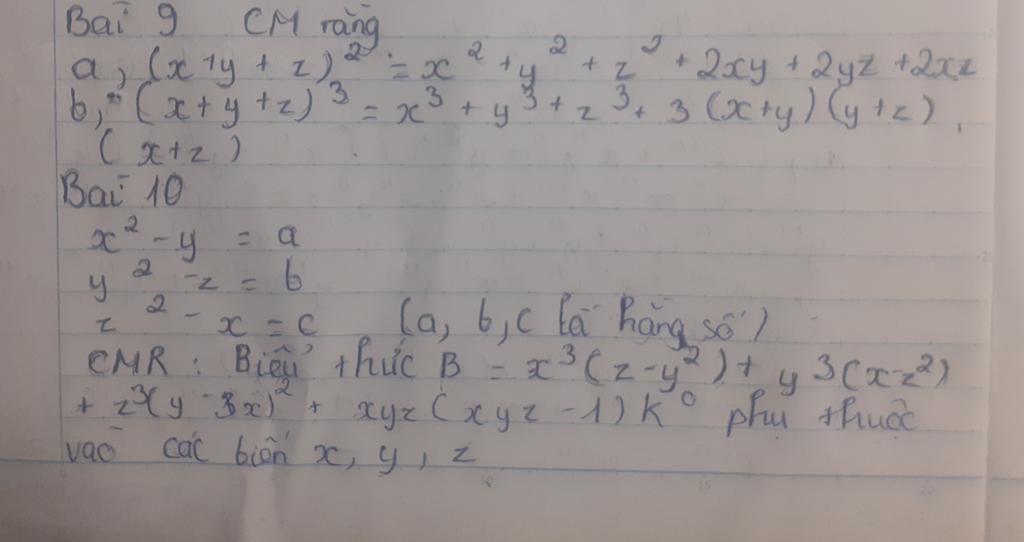 Bài 9 CM rằng
a, (x+y+z)² = x² + y² + z² + 2xy + 2yz + 2xz
b, (x+y+z)³ = x³ + y³ + z³ + 3(x+y)(y+z).
(x+z)
Bài 10
x² - y = a
y² - z = b
z² - x = c (a, b, c là hằng số)
CMR : Biểu thức B = x³(z-y²) + y³(x-z²)
+ z³(y - x)² + xyz(xyz-1) k⁰ phụ thuộc
vào các biến x, y, z